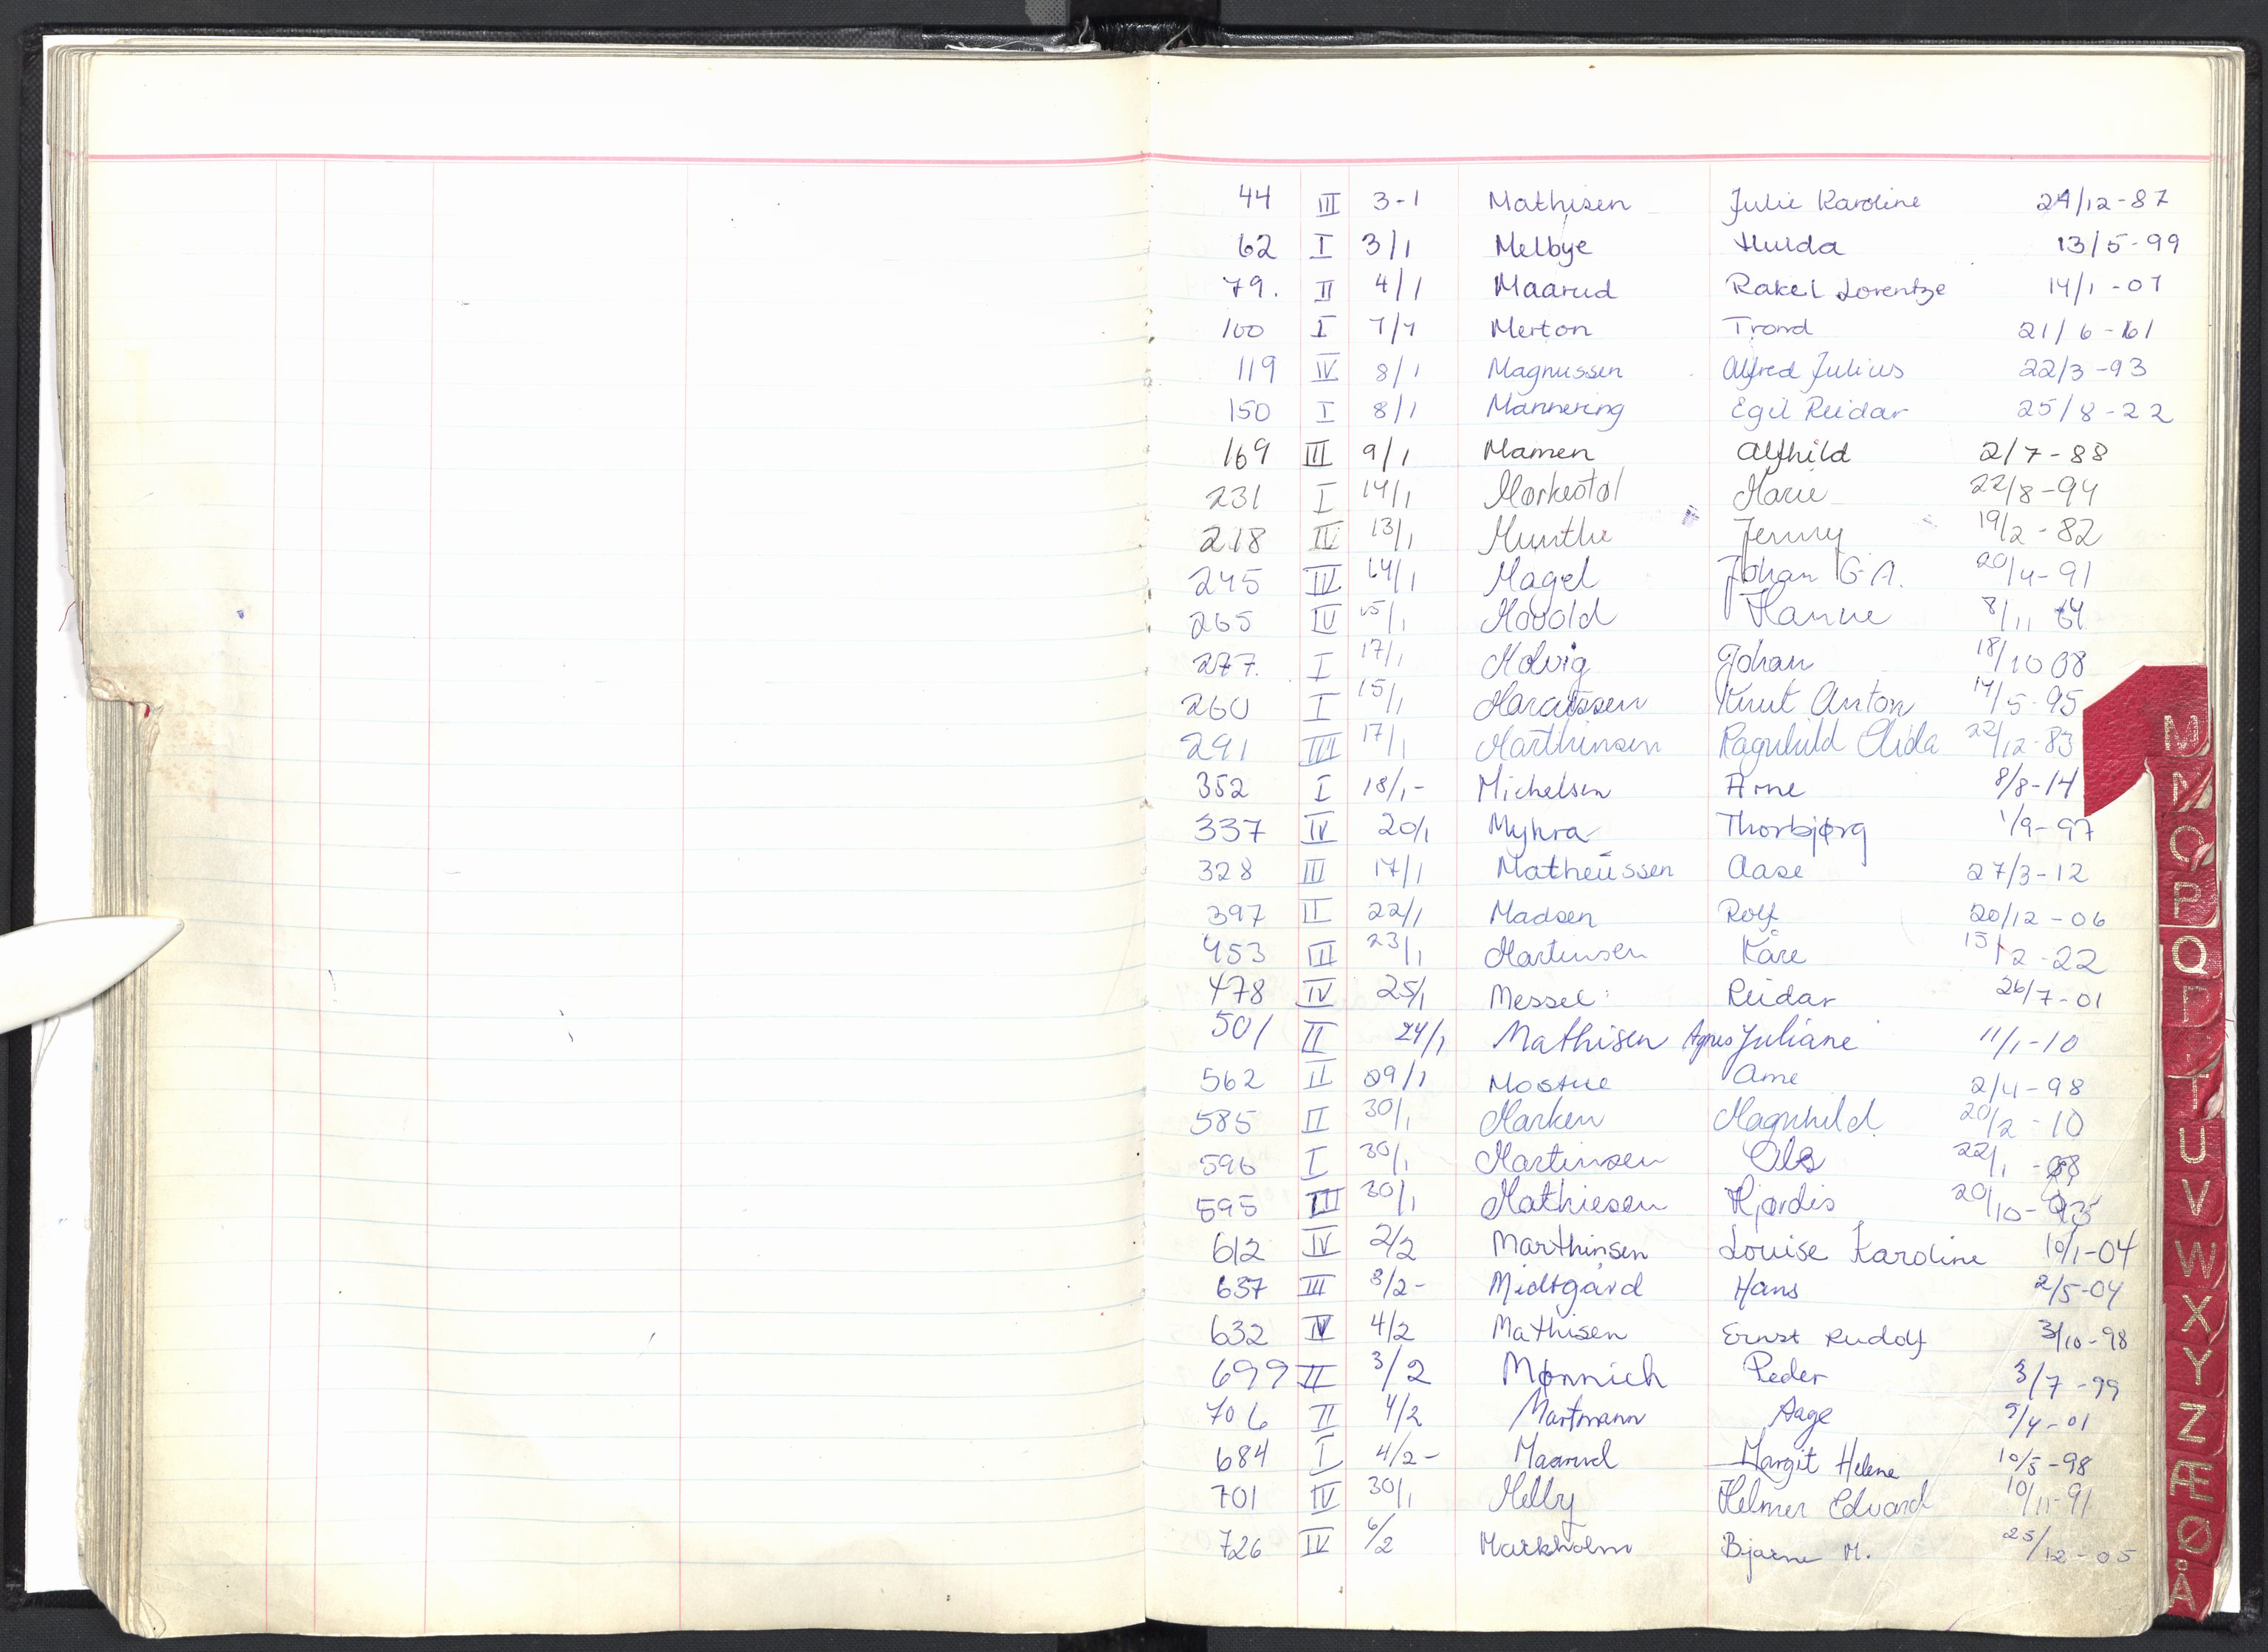 44 III 3-1 Mathisen Julie Karoline 24/12-87
62 I 3/1 Melbye Hulda 13/5-99
79. II 4/1 Maarud Rakel Lorentze 14/1-07
100 I 7/1 Merton Trond 21/6-61
119 IV 8/1 Magnussen Alfred Julius 22/3-93
150 I 8/1 Mannering Egil Reidar 25/8-22
169 III 9/1 Mamen Alfhild 2/7-88
231 I 14/1 Mørkestøl Marie 22/8-94
218 IV 13/1 Munthe Jenny 19/2-82
245 IV 14/1 Magel Johan G.A. 20/4-91
265 IV 15/1 Hanne 8/11 64
277. I 17/1 Molvig Johan 18/10 08
260 I 15/1 Knut Anton 14/5-95
291 III 17/1 Marthinsen Ragnhild 22/12-83
352 I 18/1- Michelsen Arne 8/8-14
337 IV 20/1 Myhra Thorbjørg 1/9-97
328 III 17/1 Matheussen Aase 27/3-12
397 II 22/1 Madsen Rolf 20/12-06
453 III 23/1 Martinsen Kåre 15/2-22
478 IV 25/1 Messel Reidar 26/7-01
501 II 24/1 Mathisen Agnes Juliane 11/1-10
562 II 29/1 Mostue Arne 2/4-98
585 II 30/1 Marken Magnhild 20/2-10
596 I 30/1 Martinsen 22/1
595 III 30/1 Mathiesen Hjørdis 20/10-
612 IV 2/2 Marthinsen Louise Karoline 10/1-04
637 III 3/2- Midtgård Hans 2/5-04
632 IV 4/2 Mathisen Ernst Rudolf 3/10-98
699 II 3/2 Mønnich Peder 3/7-99
706 II 4/2 Martmann Aage 9/4-01
684 I 4/2- Maarud Margit Helene 10/5-98
701 IV 30/1 Melby Helmer Edvard 10/11-91
726 IV 6/2 Markholm Bjarne M. 25/12-05
M
N
O
P
Q
R
T
U
V
W
X
Y
Z
Æ
Ø
Å